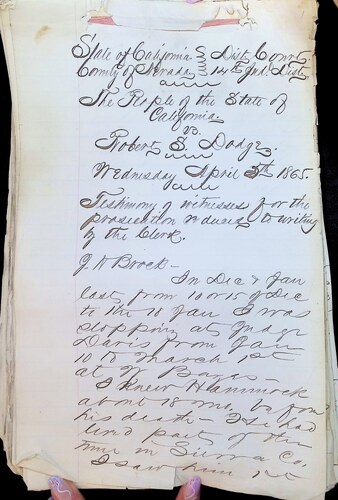 State of California } Dist. Court.
County of Nevada } 14th Jud. Dist.
The People of the State of
California
vs.
Robert S. Dodge.
Wednesday April 5th 1865.
Testimony of witnesses for the
prosecution reduced to writing
by the Clerk.
Brock —
In Dec & Jan
last, from 10 or 15 of Dec
to the 10 Jan I was
stopping at
Davis from Jan
10 to March 1st
at
I knew Hammock
about 18 mos. before
his death — He had
lived part of the
time in Sierra Co.
I saw him 1st